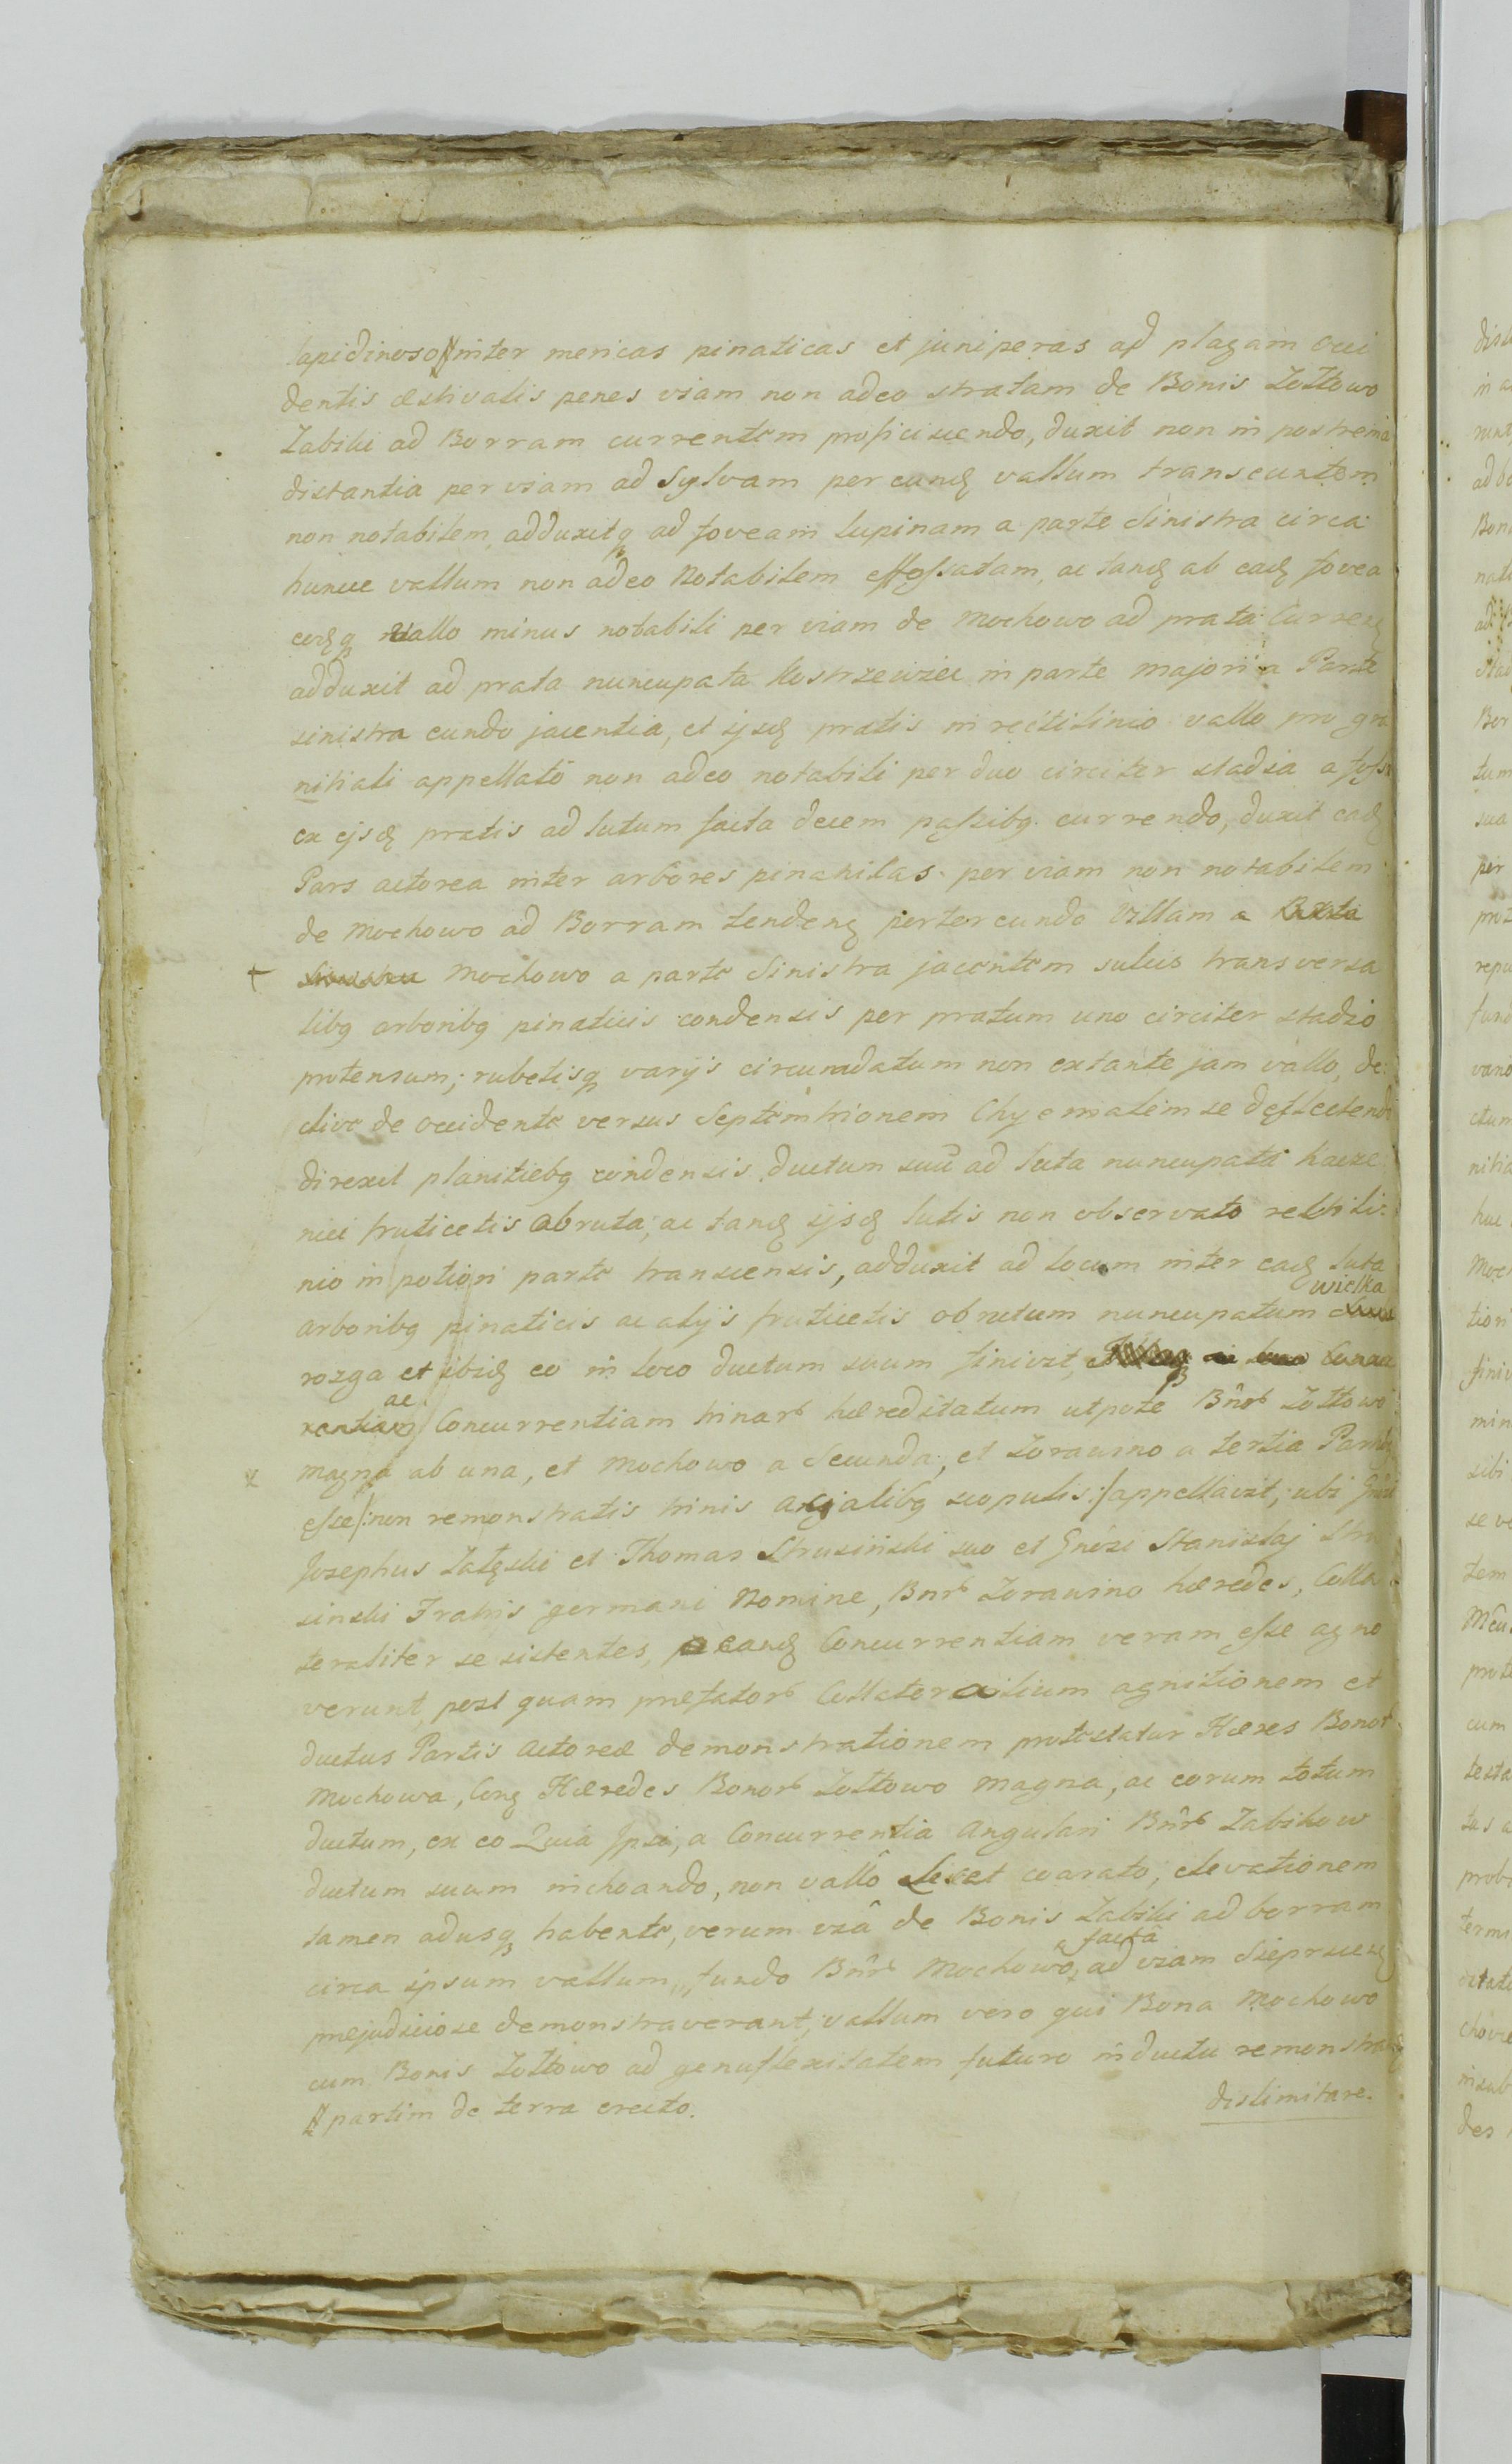 lapidinoso # inter mericas pinaticas et juniperas ad plagam Occi
dentis æstivalis penes viam non adeo stratam de Bonis Zottowo
Zabiki ad Borram currentem proficiscendo, duxit non in postrema
distantia per viam ad Sylvam per eund vallum transeuntem
non notabilem, adduxitq ad foveam lupinam a parte Sinistra circa
huncce vallum non adeo Notabilem effossatam, ac tand ab ead fovea
eodq vallo minus notabili per viam de Mochowo ad prata Curren
adduxit ad prata nuncupata Kostrzewice in parte majori a Parte
sinistra eundo jacentia, et ijsd pratis in rectilinio vallo pro gra
nitiali appellato non adeo notabili per duo circiter stadia a fossa
ex ejsd pratis ad lutum facta decem passibq currendo, duxit ead
Pars actorea inter arbores pinatilas per viam non notabilem
de Mochowo ad Borram tenden pertereundo Villam a
+ Mochowo a parte Sinistra jacentem sulcis transversa
libq arboribq pinaticis condensis per pratum uno circiter stadio
protensum; rubetisq varijs circumdatum non extante jam vallo, de
clive de occidente versus Septemtrionem Chyemalem se deflectendo
direxit planitiebq condensis ductum suũ ad luta nuncupata kacze
nici fruticetis Obruta; ac tand ijsd lutis non observato rectili
nio in potiori parte transcensis, adduxit ad locum inter ead luta
arboribq pinaticis ac alijs fruticetis obrutum nuncupatum wielka
rozga et ibid eo in loco ductum suum finivit,
ac Concurrentiam trinarb hæreditatum utpote Bnôrb Zottowo
x magna ab una, et Mochowo a Secunda, et Zorawino a tertia Partibq
esse /: non remonstratis trinis angialibq scopulis :/ appellavit; ubi Gnosi
Josephus Zaleski et Thomas Strusiński suo et Gnosi Stanislaj Stru
sinski Fratris germani Nomine, Bnrb Zorawino hæredes, Colla
teraliter se sistentes, eand Concurrentiam veram esse agno
verunt, post quam præfatorb Collateralium agnitionem et
ductus Partis Actoreæ demonstrationem protestatur Hæres Bonorb
Mochowa, Cong Hæredes Bonorb Zottowo magna, ac eorum totum
ductum, ex eo Quia Ipsi, a Concurrentia Angulari Bnôrb Zabikow
ductum suum inchoando, non vallô licet coarato, elevationem
tamen adusq habente, verum viâ de Bonis Zabiki ad borram
circa ipsum vallum, fundo Bnôrb Mochowo, facta ad viam Sieprcien
præjudiciose demonstraverant, vallum vero qui Bona Mochowo
cum Bonis Zottowo ad genuflexitatem futuro in ductu remonstran
# partim de terra erecto.
dislimitare.